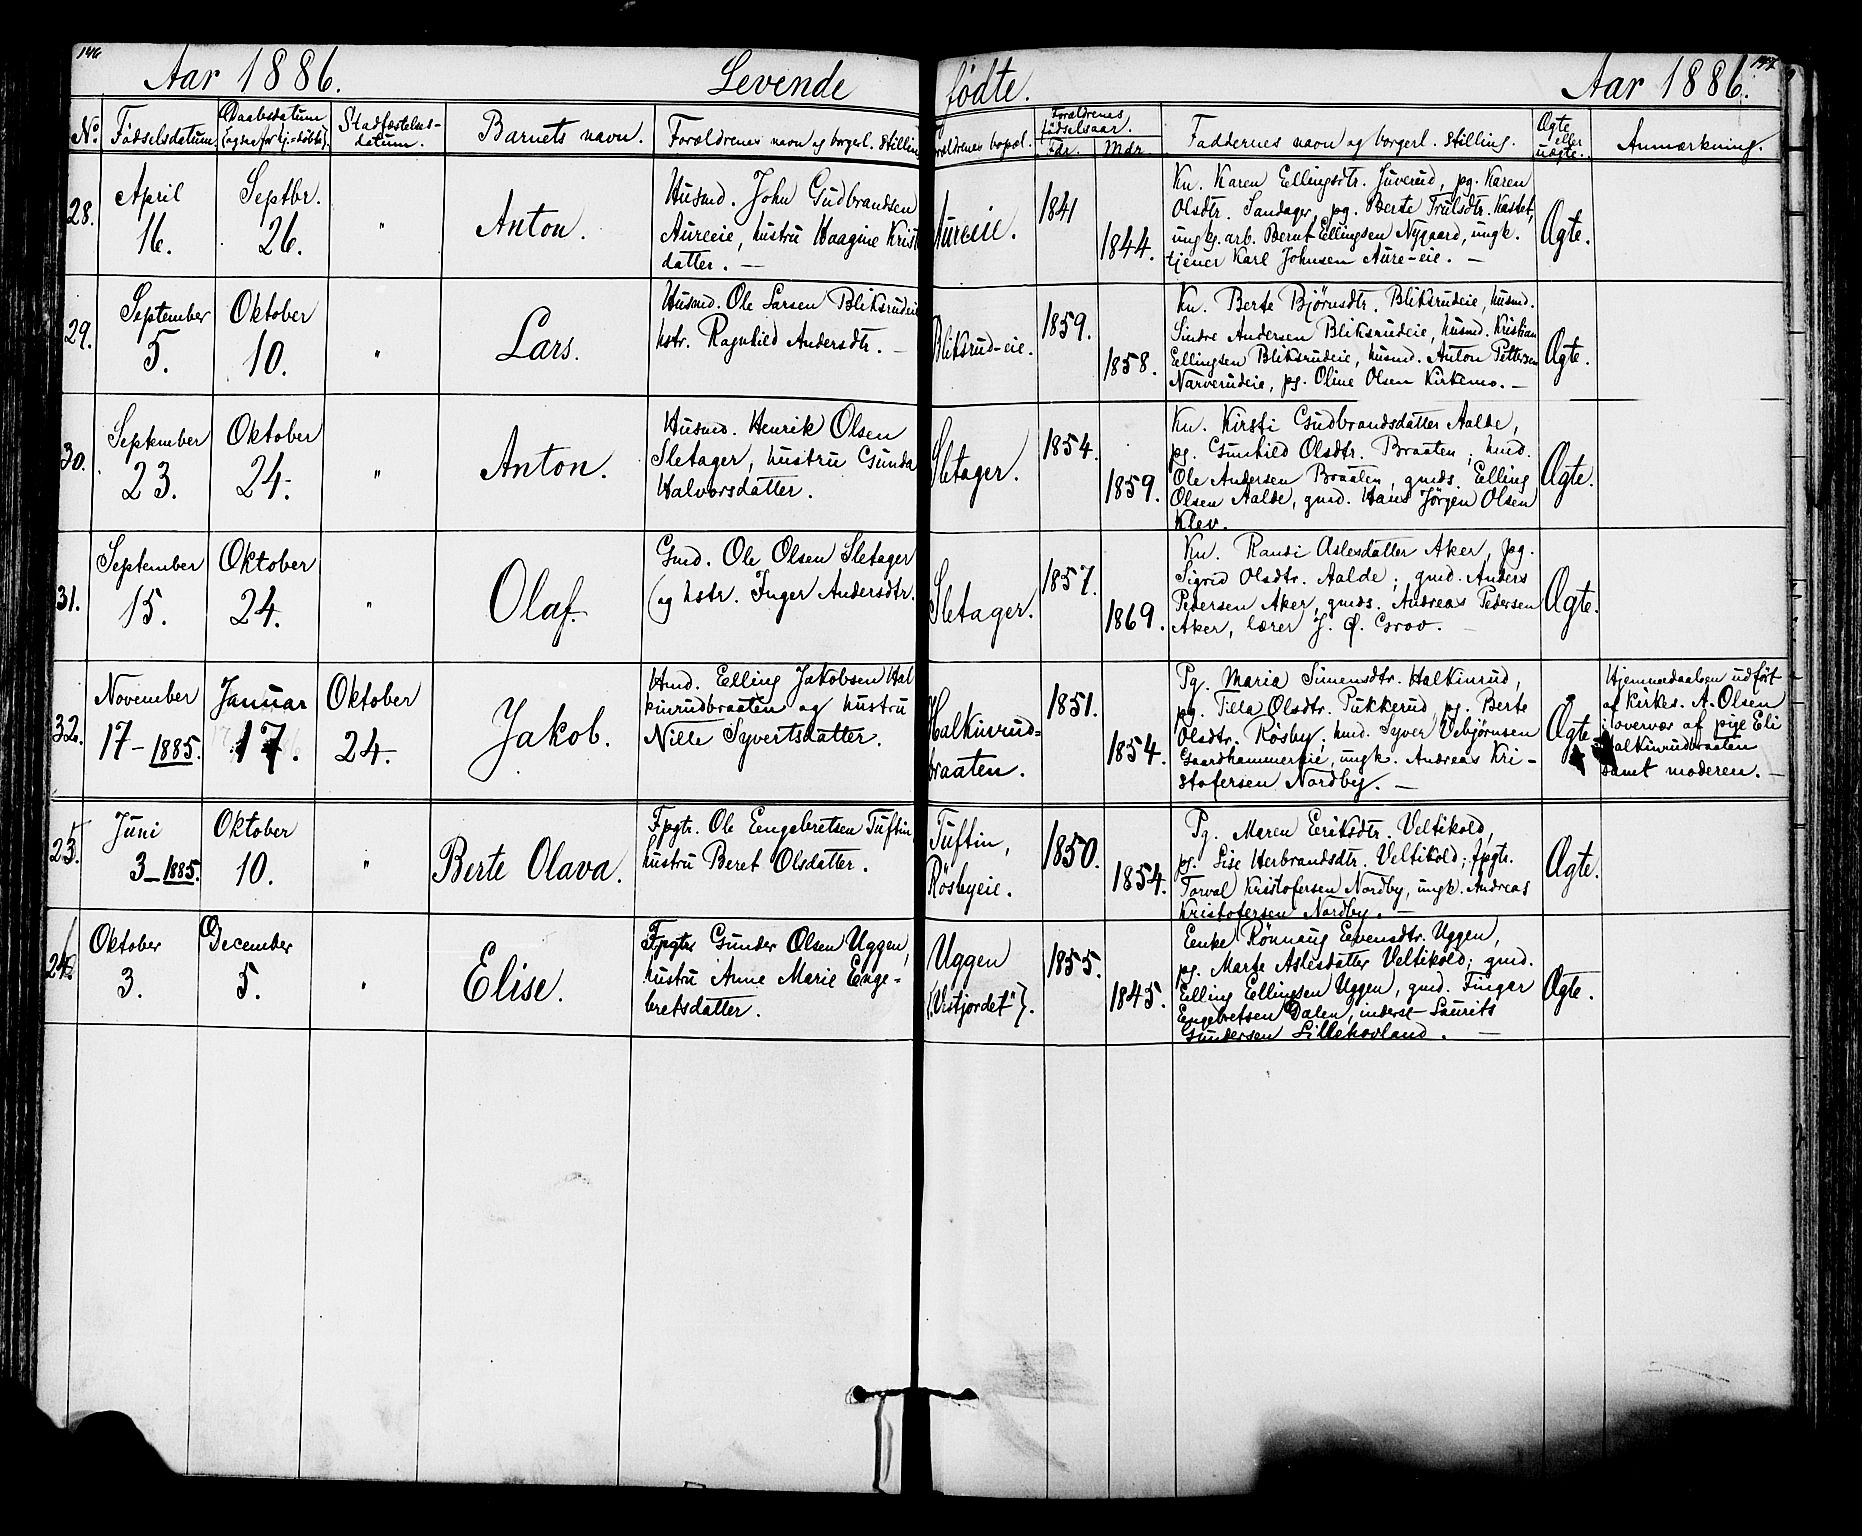 146
Aar 1886.
Levende
fødte.
Aar 1886.
147
No.
Fødselsdatum.
Daabsdatum
Stadfæstelses-
datum.
Barnets navn.
Forældrenes navn og borgerl. stilling
Forældrenes bopæl.
Forældrenes
fødselsaar.
Fdr.
Mdr.
Faddernes navn og borgerl. stilling.
Ægte
eller
uægte.
Anmærkning.
28.
April
16.
Septbr.
26.
"
Anton.
Husmd. John Gudbrandsen
Aureeie, hustru Haagine Krist
datter. —
Aureeie.
1841
1844.
Kv. Karen Ellingsdtr. Juverud, pg. Karen
Olsdtr. Sandager, pg. Berte Trulsdtr. Kastet,
ungk. arb. Bernt Ellingsen Nygaard, ungk.
tjener Karl Johnsen Aure-eie. —
Ægte.
29.
September
5.
Oktober
10.
"
Lars.
Husmd. Ole Larsen Bliksrudeie
hstr. Ragnhild Andersdtr. —
Bliksrud-eie.
1859.
1858.
Kv. Berte Bjørnsdtr. Bliksrudeie, husmd.
Sindre Andersen Bliksrudeie, husmd. Kristian
Ellingsen Bliksrudeie, husmd. Anton Pettersen
Narverudeie, pg. Oline Olsen Kirkemo. —
Ægte.
30.
September
23.
Oktober
24.
"
Anton.
Husmd. Henrik Olsen
Sletager, hustru Gunda
Halvorsdatter.
Sletager.
1854.
1859.
Kv. Kirsti Gudbrandsdatter Aalde,
pg. Gunhild Olsdtr. Braaten; hmd.
Ole Andersen Braaten, gmds. Elling
Olsen Aalde, gmd. Hans Jørgen Olsen
Klev.
Ægte.
31.
September
15.
Oktober
24.
"
Olaf.
Gmd. Ole Olsen Sletager
og hstr. Inger Andersdtr.
Sletager.
1857.
1869.
Kv. Randi Aslesdatter Aker, pg.
Sigrid Olsdtr. Aalde; gmd. Anders
Pedersen Aker, gmds. Andreas Pedersen
Aker, lærer J. O. Grov. —
Ægte.
32.
November
17 - 1885.
Januar
17.
Oktober
24.
Jakob.
Hmd. Elling Jakobsen Hal
kinrudbraaten og hustru
Nille Syvertsdatter.
Halkinrud-
braaten.
1851.
1854.
Pg. Maria Simensdtr. Halkinrud,
pg. Tilla Olsdtr. Pukkerud, pg. Berte
Olsdtr. Rösby; hmd. Syver Vebjørnsen
Gaardhammereie, ungk. Andreas Kri-
stofersen Nordby. —
Ægte.
Hjemmedaaben udført
af kirkes. A. Olsen
i overvær af pige Eli
Halkinrudbraaten
samt moderen. —
23.
Juni
3 - 1885.
Oktober
10.
"
Berte Olava.
Fpgtr. Ole Engebretsen Tuftin,
hustru Beret Olsdatter.
Tuftin,
Rösbyeie.
1850.
1854.
Pg. Maren Eriksdtr. Veltikold,
pg. Lise Herbrandsdtr. Veltikold; fpgtr.
Torval Kristofersen Nordby, ungk. Andreas
Kristofersen Nordby. —
Ægte.
24.
Oktober
3.
December
5.
"
Elise.
Fpgtr Gunder Olsen Uggen,
hustru Anne Marie Enge-
bretsdatter.
Uggen
("Vestjordet").
1855.
1845.
Enke Rönnaug Evensdtr. Uggen,
pg. Marte Aslesdatter Veltikold; gmd.
Elling Ellingsen Uggen, gmd. Fingar
Engebretsen Dalen, inderst Laurits
Gundersen Lillehovland. —
Ægte.